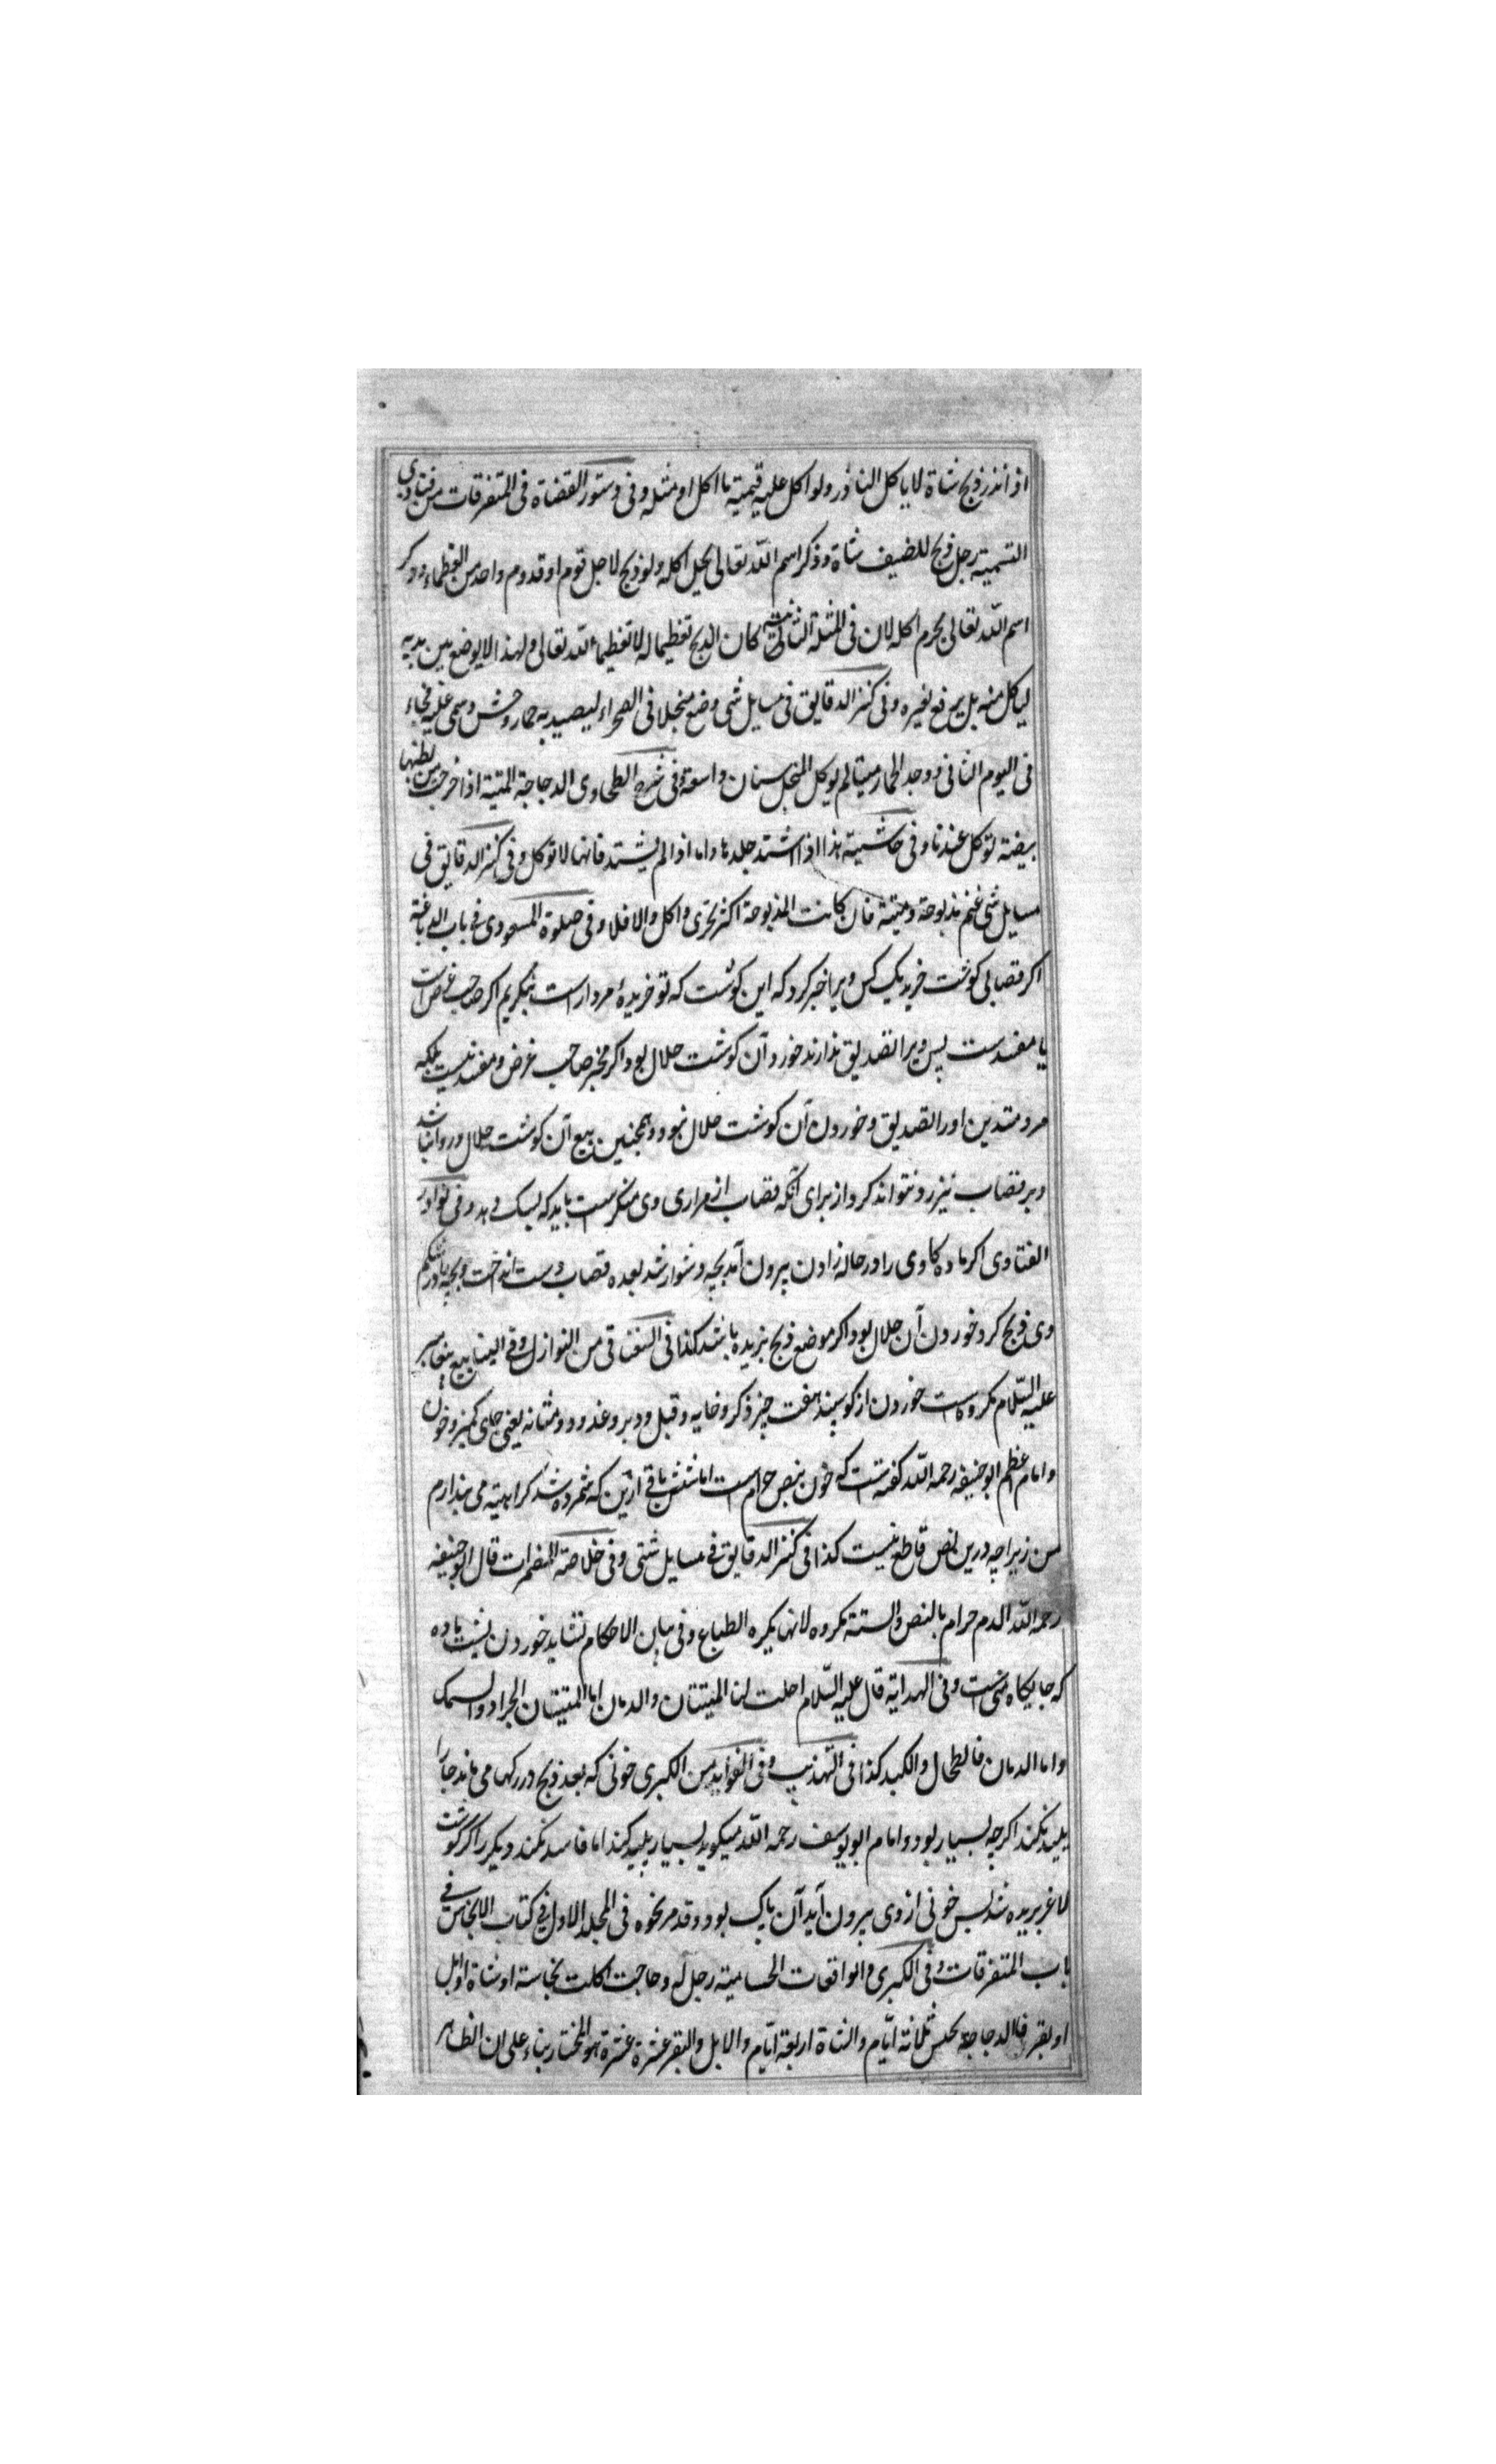 اذا نذر ذبح شاة لا یاکل الناذر ولو اکل علیه قیمة ما اکل او مثله و فی دستور القضاة فی المتفرقات من فتاوی
التسمیة رجل ذبح للضیف شاة و ذکر اسم الله تعالی یحل اکله ولو ذبح لاجل قوم او قدوم واحد من العظماء و ذکر
اسم الله تعالی یحرم اکله لان فی المسئلة الثانیة کان الذبح تعظیما له لا تعظیما لله تعالی و لهذا لا یوضع بین یدیه
لیاکل منه بل یرفع لغیره و فی کنز الدقایق فی مسایل شتی وضع منجلا فی الصحراء لیصید به حمار وحش و سمی علیه فجاء
فی الیوم الثانی و وجد الحمار میتا لم یوکل المنجل سنان واسعة و فی شرح الطحاوی الدجاجة المیتة اذا خرجت من بطنها
بیضة توکل عندنا و فی حاشیته هذا اذا اشتد جلدها و اما اذا لم یشتد فانها لا توکل و فی کنز الدقایق فی
مسایل شتی غنم مذبوحة و میتة فان کانت المذبوحة اکثر تحری و اکل و الا فلا و فی صلوة المسعودی فی باب الدباغة
اکر قصابی کوشت خرید یک کس ویرا خبر کرد که این کوشت که تو خریدهٔ مردار است بنکریم اکر صاحب غرض است
یا مفسد ست پس ویرا تصدیق ندارند خورد آن کوشت حلال بود و اکر مخبر صاحب غرض و مفسد نیست بلکه
مرد متدین او را تصدیق و خوردن آن کوشت حلال نبود و همچنین بیع آن کوشت حلال و روا نباشد
و بر قصاب نیز رد نتواند کرد از برای آنکه قصاب از مرداری وی منکر ست باید که بسک دهد و فی نوادر
الفتاوی اکر ماده کاوی را در حاله زادن بیرون آمد بچه دشوار شد بعده قصاب دست انداخت و بچه را در شکم
وی ذبح کرد خوردن آن حلال بود اکر موضع ذبح بریده باشد کذا فی السغناقی من النوازل و فی الینابیع پیغامبر
علیه السلام مکروه است خوردن از کوسپند هفت چیز ذکر و خایه و قبل و دبر و غدود و مثانه یعنی جای کمیز و خون
و امام اعظم ابو حنیفه رحمه الله کفته ست که خون بنص حرام ست اما شش باقی ازین که شمرده شد کراهیته می پندارم
من زیرا چه درین نص قاطع نیست کذا فی کنز الدقایق فی مسایل شتی و فی خلاصة المضمرات قال ابو حنیفه
رحمه الله الدم حرام بالنص و الستة مکروه لانها یکره الطباع و فی بیان الاحکام نشاید خوردن پشت ماده
که جایکاه منی است و فی الهدایة قال علیه السلام احلت لنا المیتتان و الدمان اما المیتتان الجراد و السمک
و اما الدمان فالطحال و الکبد کذا فی التهذیب و فی الفواید من الکبری خونی که بعد ذبح در رکها می ماند جا را
پلید نکند اکرچه بسیار بود و امام ابو یوسف رحمه الله میکوید بسیار پلید کند اما فاسد نکند دیکر را اکر کوشت
لاغر بریده شد پس خونی از وی بیرون آید آن پاک بود و قد مر نحوه فی المجلد الاول فی کتاب الانجاس فی
باب المتفرقات و فی الکبری و الواقعات الحسامیة رجل له دجاجت اکلت نجاسة او شاة او ابل
او بقر فالدجاجة تحبس ثلاثة ایام و الشاة اربعة ایام و الابل و البقر عشرة عشرة هو المختار بناء علی ان الظاهر